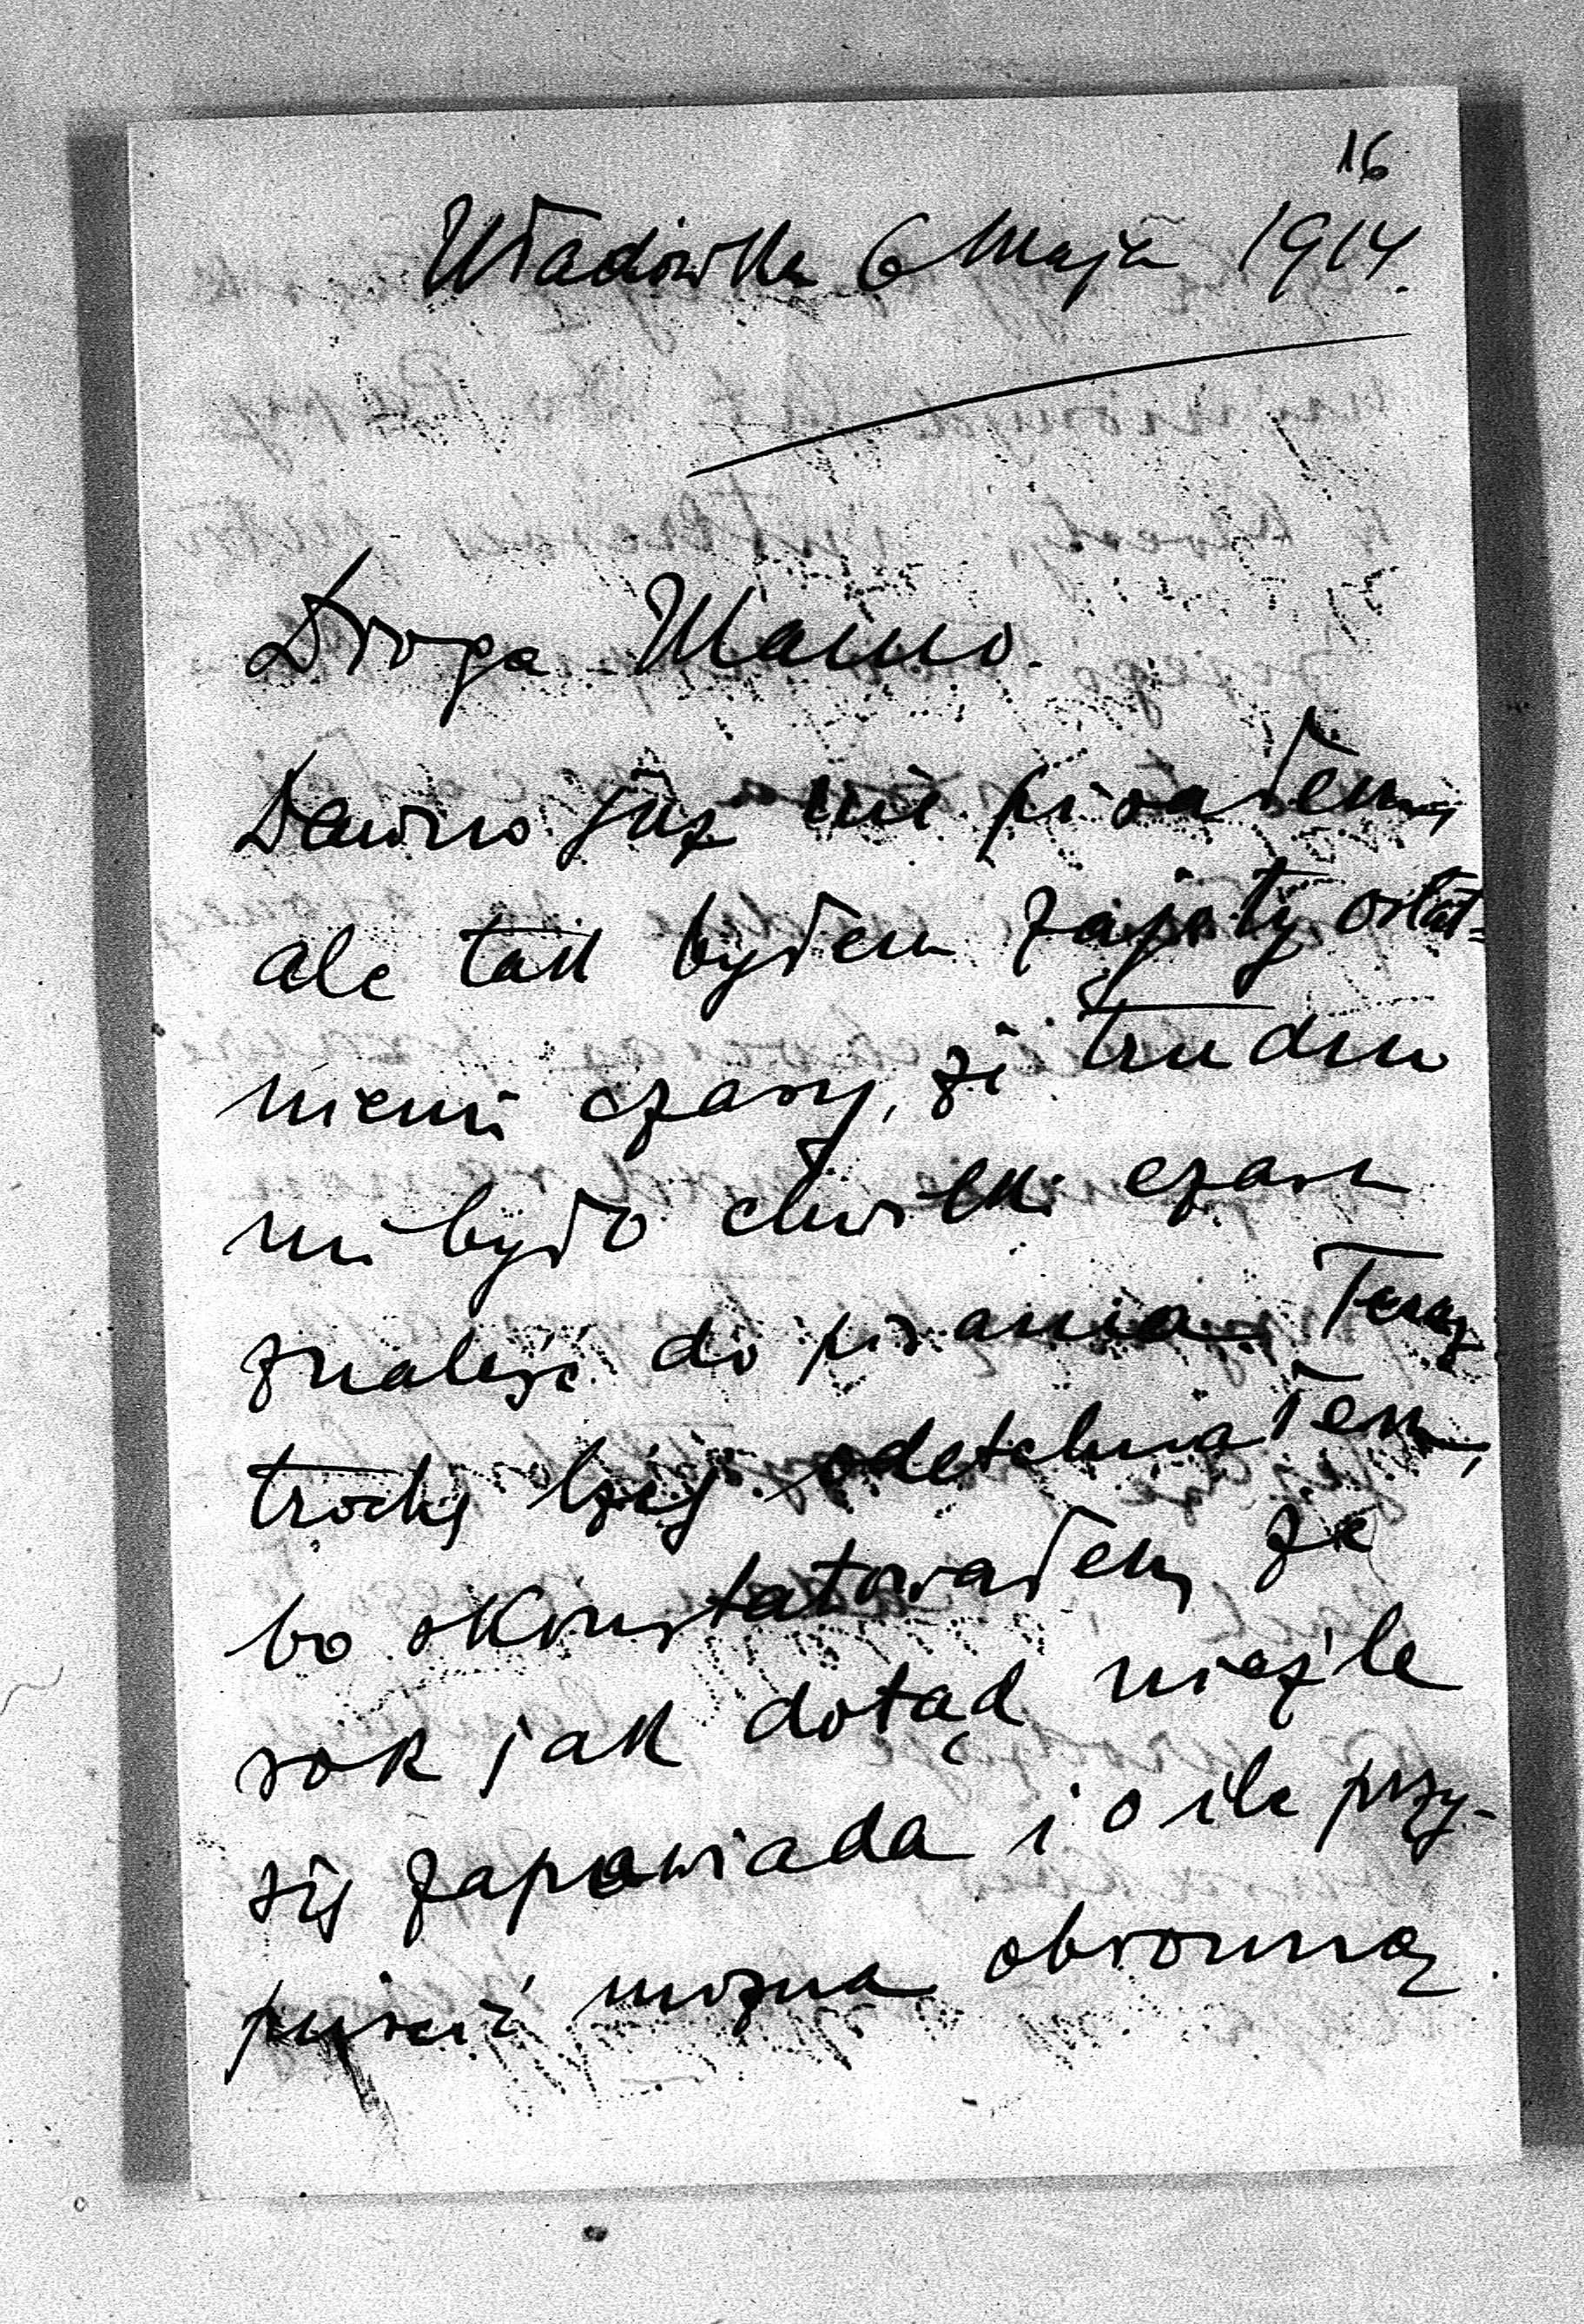 16
Władówka 6 Maja 1914.
Droga Mamo.
Dawno już nie pisałem,
ale tak byłem zajęty ostat=
niemi czasy, że trudno
mi było chwilki czasu
znaleść do pisania. Teraz
trochę lżej odetchnąłem,
bo skonstatowałem, że
rok jak dotąd nieźle
się zapowiada i o ile przy-
puścić można obronną